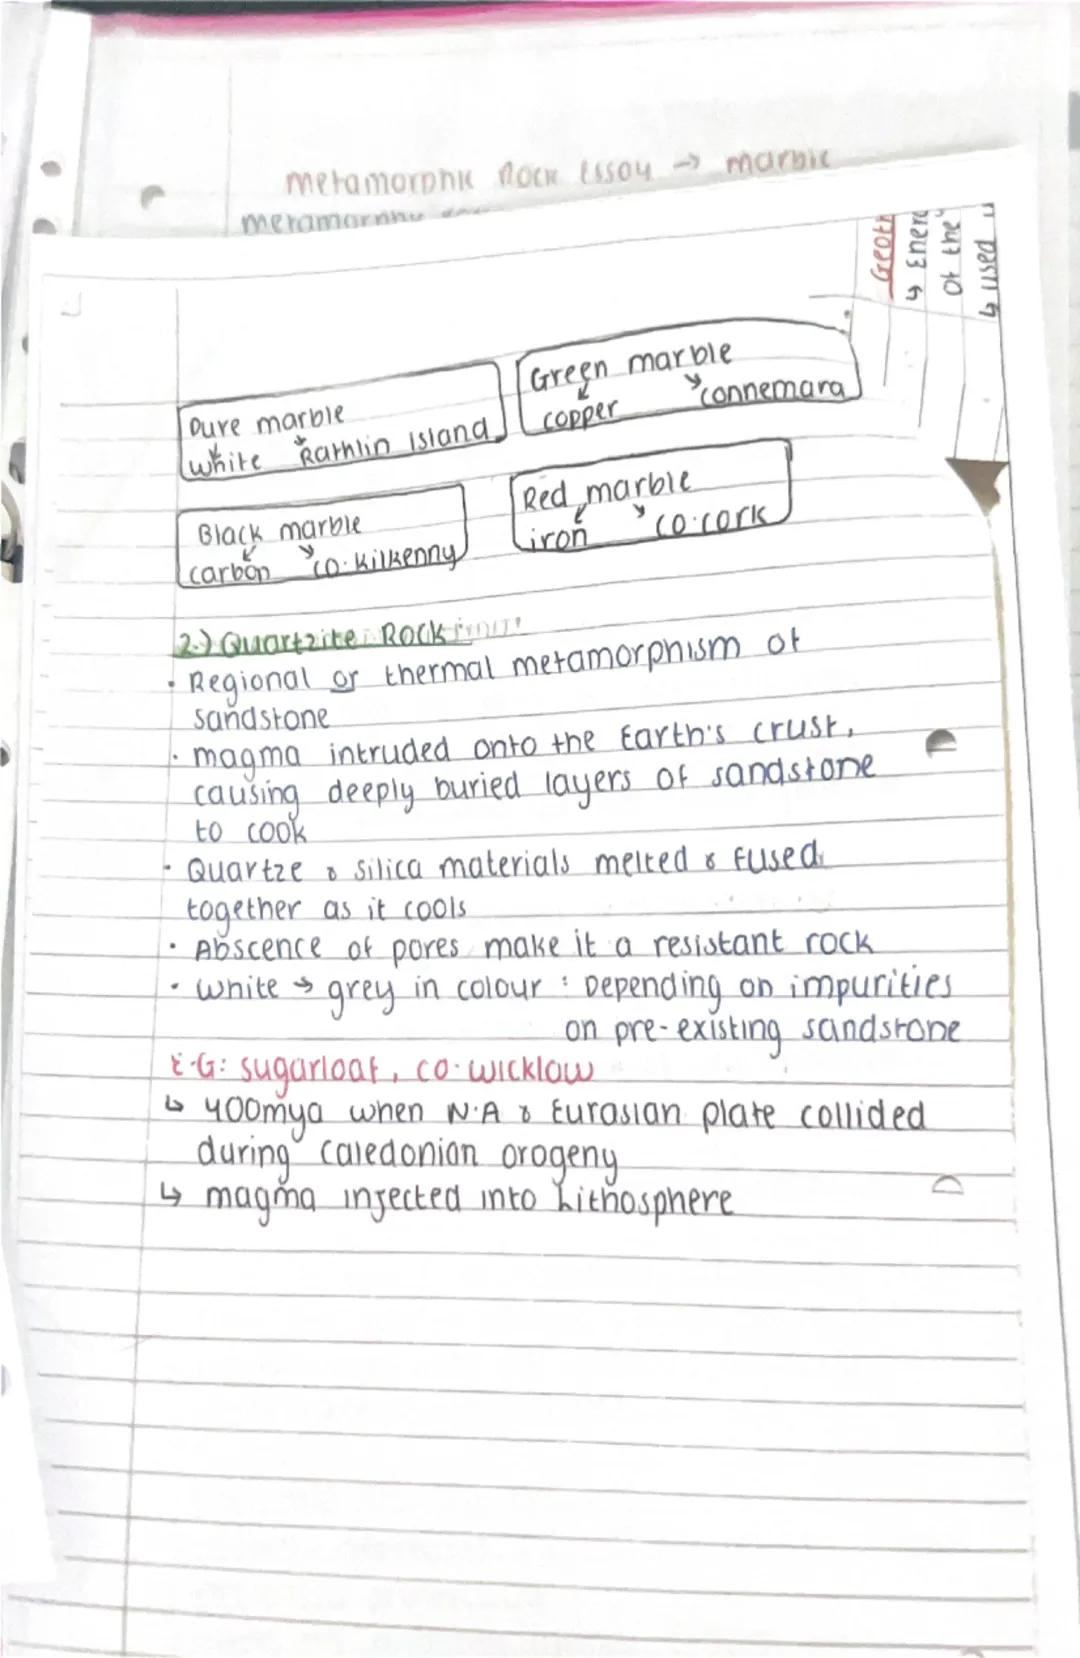 metamorphic Rock Essay → marble
metamorphic
Geoth
↳ Energ
of the
↳ used
Pure marble
white Rathlin island
Green marble
copper connemara
Black marble
carbon co. Kilkenny
Red marble
iron co. cork
2.) Quartzite Rock
· Regional or thermal metamorphism of
sandstone
· magma intruded onto the Earth's crust,
causing deeply buried layers of sandstone
to cook
· Quartze & silica materials melted & fused
together as it cools
· Abscence of pores make it a resistant rock
· white → grey in colour : Depending on impurities
on pre-existing sandstone
E.G: sugarloaf, co. wicklow
↳ 400mya when N.A & Eurasian plate collided
during caledonian orogeny
↳ magma injected into Lithosphere